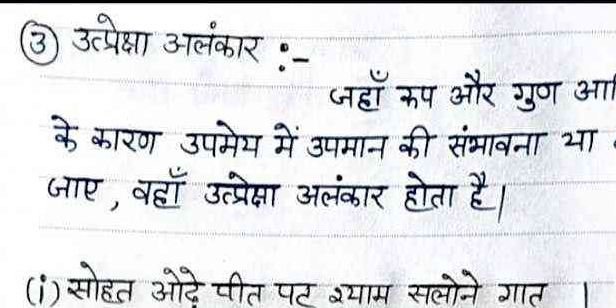 ③ उत्प्रेक्षा अलंकार :-
जहाँ रूप और गुण
के कारण उपमेय में उपमान की संभावना या
जाए, वहाँ उत्प्रेक्षा अलंकार होता है।
(i) सोहत ओढ़े पीत पट श्याम सलोने गात ।